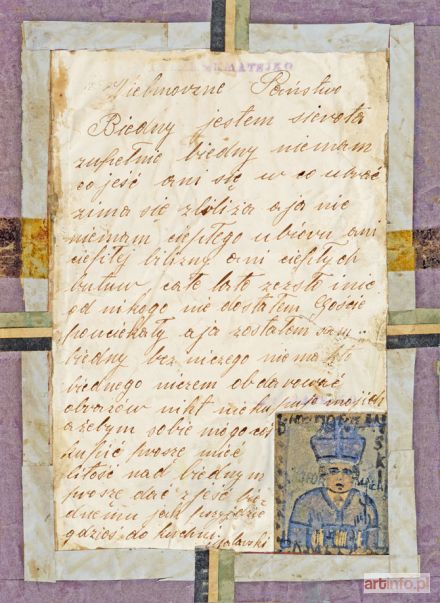 MATEJKO
Wielmożne Państwo
Biedny jestem sierota
zupełnie biedny niemam
co jeść ani się w co ubrać
zima się zbliża a ja nic
niemam ciepłego ubioru ani
ciepłej bilizny ani ciepłych
butuw, całe lato zeszło i nic
od nikogo nie dostałem Goście
pouciekały a ja zostałem sam
biedny bez niczego niema kto
biednego niczem obdarować
obrazów nikt nie kupuje mojich
ażebym sobie mógł coś
kupić proszę mieć
litość nad biednym
proszę dać zjeść bie
dnemu jak przyjdzie
gdzieś do kuchni
artinfo.pl